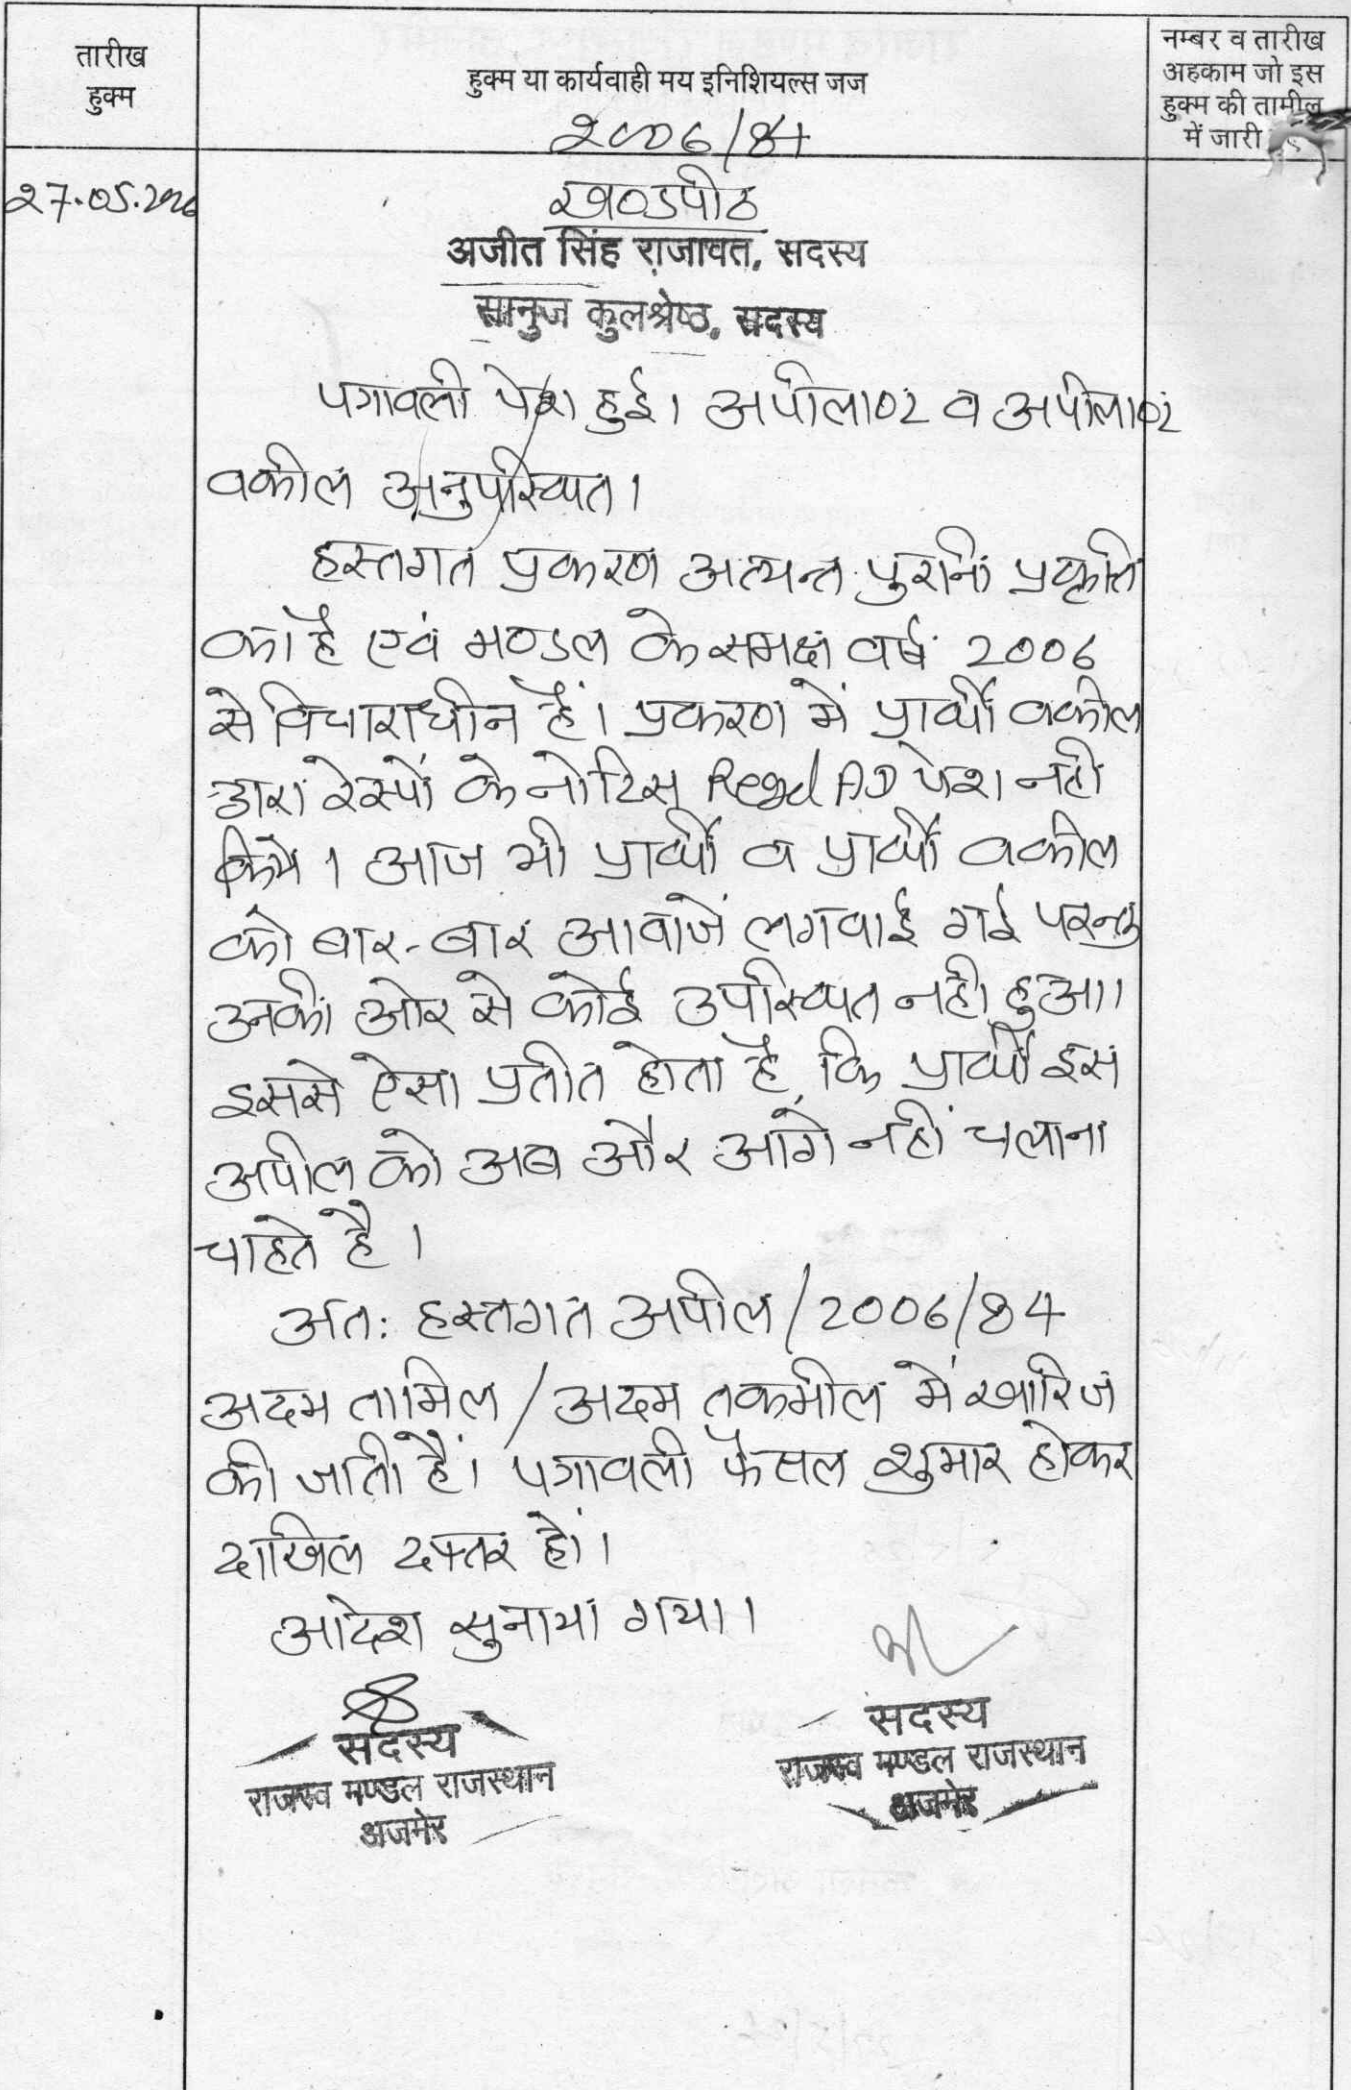 तारीख
हुक्म
हुक्म या कार्यवाही मय इनिशियल्स जज
नम्बर व तारीख
अहकाम जो इस
हुक्म की तामील
में जारी
2006/84
27.05.
खण्डपीठ
अजीत सिंह राजावत, सदस्य
सानुज कुलश्रेष्ठ, सदस्य
पत्रावली पेश हुई। अपीलाण्ट व अपीलाण्ट
वकील अनुपस्थित।
हस्तगत प्रकरण अत्यन्त पुरानी प्रकृति
का है एवं मण्डल के समक्ष वर्ष 2006
से विचाराधीन है। प्रकरण में प्रार्थी वकील
द्वारा रेस्पो के नोटिस Regd AD पेश नही
किये। आज भी प्रार्थी व प्रार्थी वकील
को बार-बार आवाजें लगवाई गई परन्तु
उनकी ओर से कोई उपस्थित नही हुआ।
इससे ऐसा प्रतीत होता है, कि प्रार्थी इस
अपील को अब और आगे नहीं चलाना
चाहते है।
अतः हस्तगत अपील/2006/84
अदम तामिल/अदम तकमील में खारिज
की जाती है। पत्रावली फैसल शुमार होकर
दाखिल दफ्तर हो।
आदेश सुनाया गया।
सदस्य
राजस्व मण्डल राजस्थान
अजमेर
सदस्य
राजस्व मण्डल राजस्थान
अजमेर